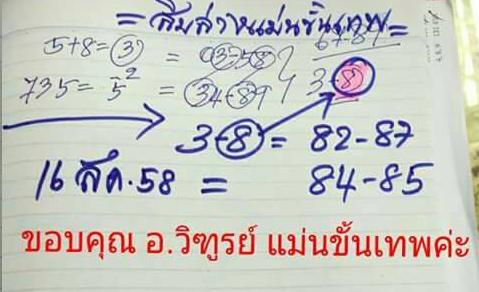 = สืบสานแม่นขั้นเทพ =
5+8= 3 =
735= 5 2 = 34-89 3 8
3-8 = 82-87
16 สค.58 = 84-85
ขอบคุณ อ.วิฑูรย์ แม่นขั้นเทพค่ะ